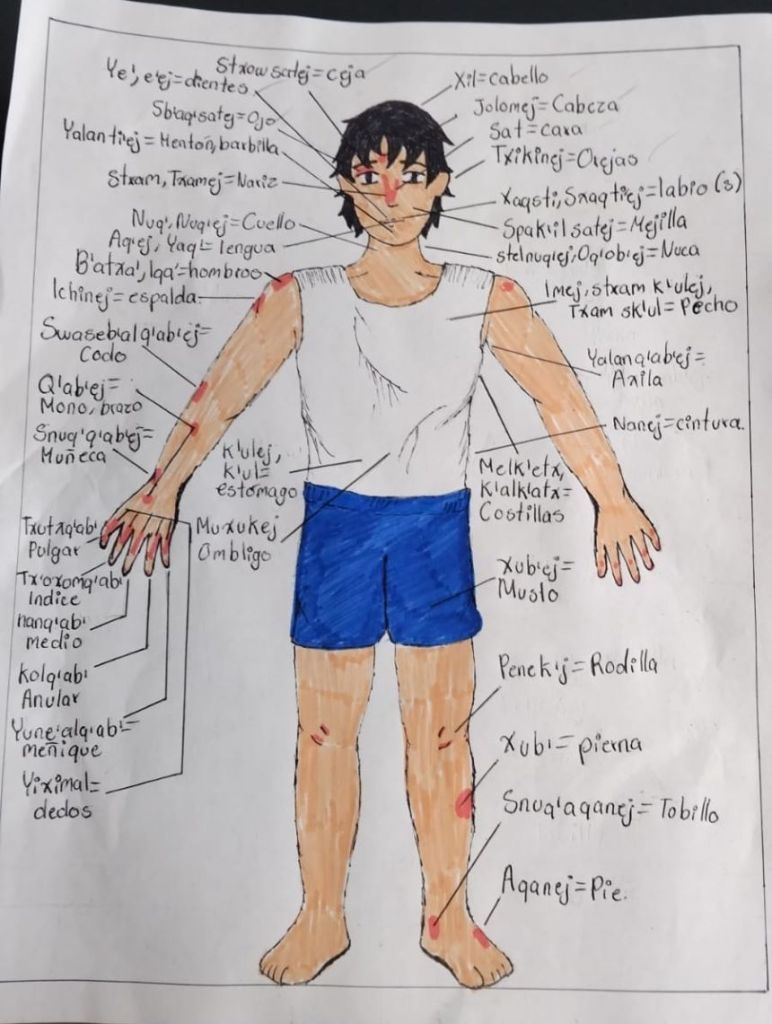 Stxow satej=ceja
Ye', e'ej=dientes
Sb'aq'satej=Ojo
Yalantiej=Mentoñ, barbilla
Stxam, Txamej=Nariz
Nuq', Nuq'ej=Cuello
Aq'ej, Yaq'= lengua
B'atxa', Iqa'=hombros
Ichinej=espalda
Swaseb'alq'ab'ej=
Codo
Q'ab'ej=
Mono, brazo
Snuq'q'ab'ej=
Muñeca
K'ulej,
K'ul=
estomago
Muxukej
Ombligo
Txutxq'ab'
Pulgar
Tx'oxomq'ab'
Indice
nanq'ab'
medio
Kolq'ab'
Anular
Yune'alq'ab'=
meñique
Yiximal=
dedos
Xil=cabello
Jolomej=Cabeza
Sat=cara
Txikinej=Orejas
Xaqsti, Sxaqtiej=labio (s)
Spak'il satej=Mejilla
stelnuq'ej, Oq'ob'ej=Nuca
Imej, stxam k'ulej,
Txam sk'ul= Pecho
Yalanq'ab'ej=
Axila
Nanej=cintura.
Melk'etx,
K'alk'atx=
Costillas
Xub'ej=
Muslo
Penek'ij= Rodilla
Xub'=pierna
Snuq'aqanej= Tobillo
Aqanej=Pie.